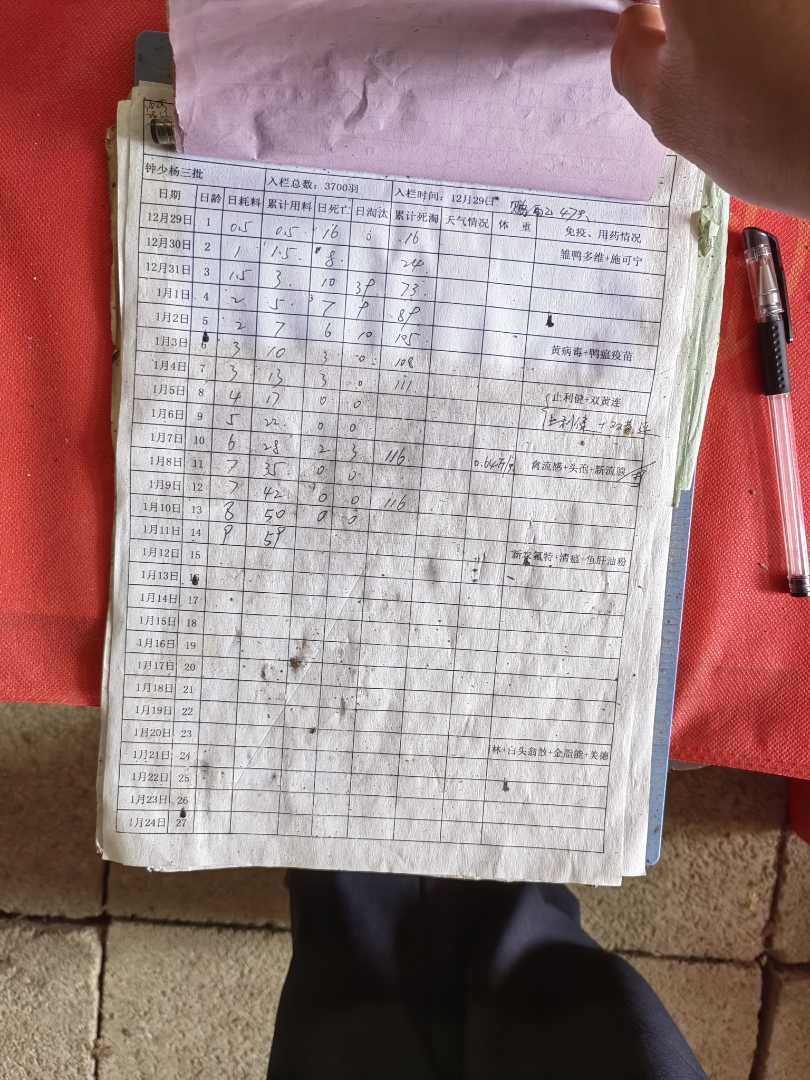 钟少杨三批 入栏总数：3700羽 入栏时间：12月29日
日期 日龄 日耗料 累计用料 日死亡 日淘汰 累计死淘 天气情况 体 重 免疫、用药情况
12月29日 1 0.5 0.5 16 0 16
12月30日 2 1 1.5 8 24 雏鸭多维+施可宁
12月31日 3 1.5 3 10 39 73
1月1日 4 2 5 7 9 89
1月2日 5 2 7 6 10 105
1月3日 6 3 10 3 0 108 黄病毒+鸭瘟疫苗
1月4日 7 3 13 3 0 111
1月5日 8 4 17 0 0 止利健+双黄连
1月6日 9 5 22 0 0 止利健+双黄连
1月7日 10 6 28 2 3 116
1月8日 11 7 35 0 0 禽流感+头孢+新流腺
1月9日 12 7 42 0 0 116
1月10日 13 8 50 0 0
1月11日 14 9 59
1月12日 15 鱼肝油粉
1月13日
1月14日 17
1月15日 18
1月16日 19
1月17日 20
1月18日 21
1月19日 22
1月20日 23
1月21日 24 林+白头翁散+金脂能+美德
1月22日 25
1月23日 26
1月24日 27